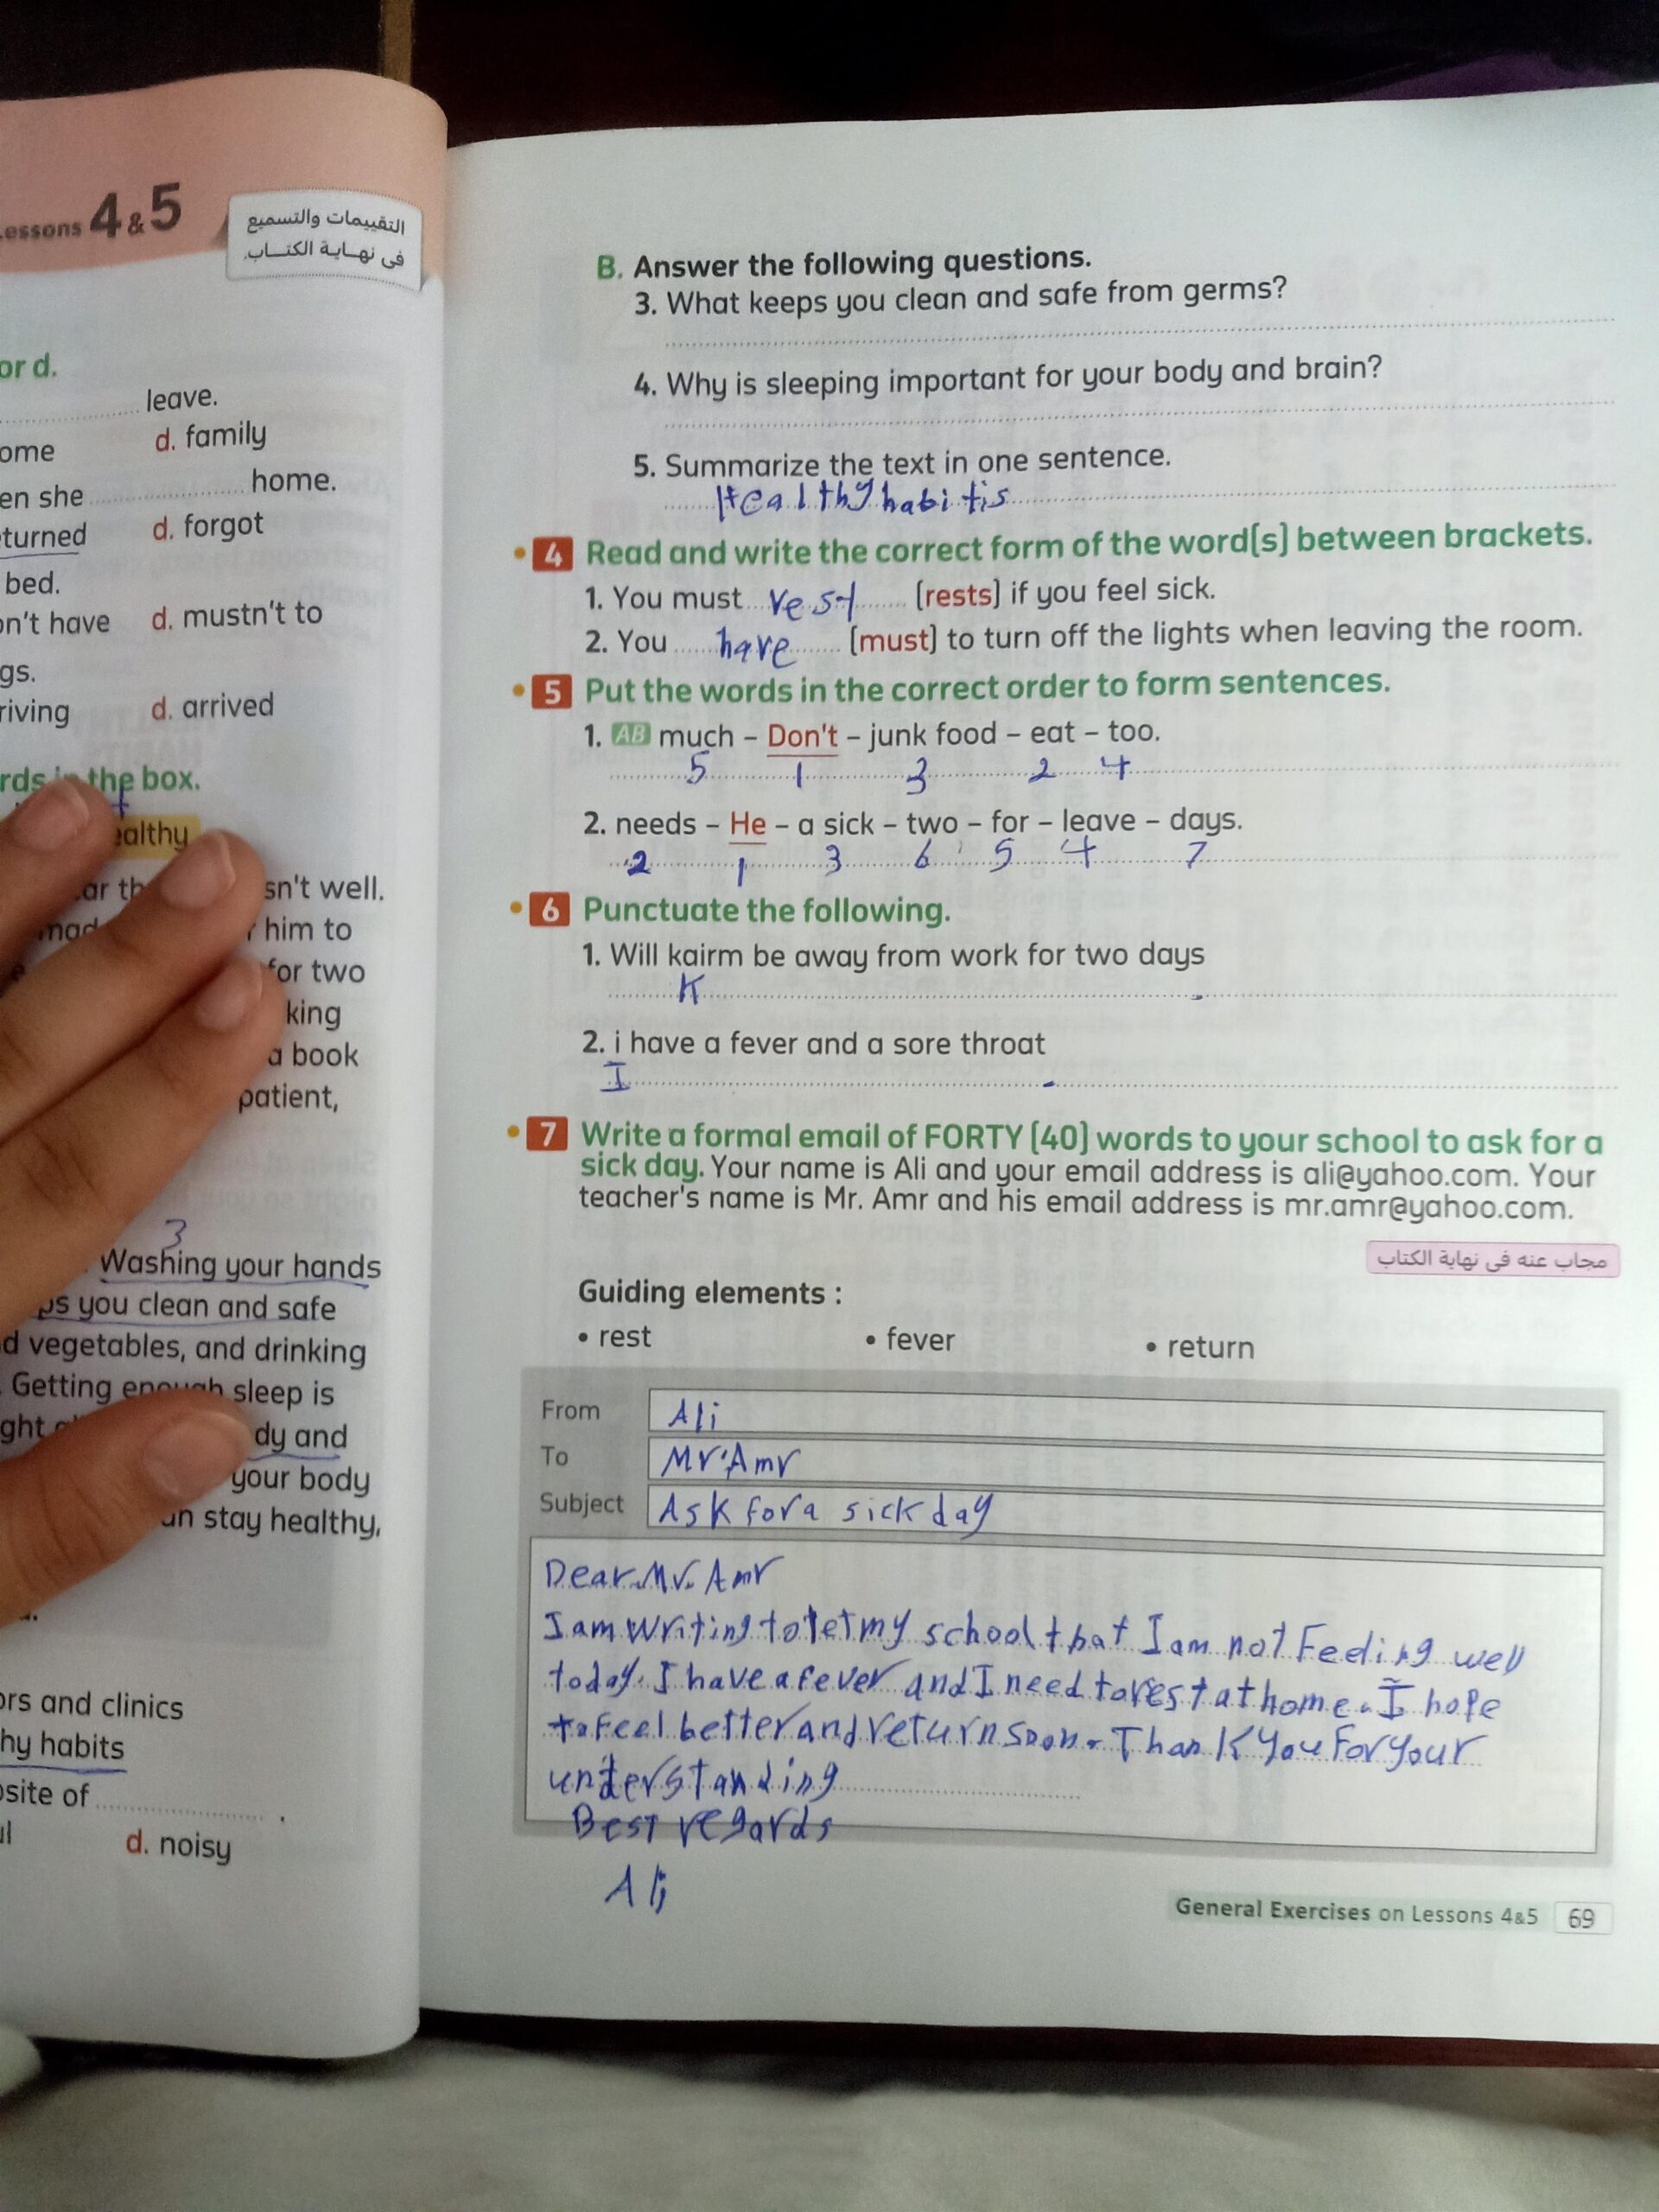 Lessons 4 & 5
التقييمات والتسميع
فى نهاية الكتاب.
or d.
leave.
d. family
en she home.
turned d. forgot
bed.
n't have d. mustn't to
gs.
d. arrived
the box.
sn't well.
him to
for two
king
a book
patient,
3
Washing your hands
you clean and safe
vegetables, and drinking
Getting enough sleep is
and
your body
stay healthy,
and clinics
habits
of
d. noisy
B. Answer the following questions.
3. What keeps you clean and safe from germs?
4. Why is sleeping important for your body and brain?
5. Summarize the text in one sentence.
Healthy habitis
4 Read and write the correct form of the word(s) between brackets.
1. You must rest (rests) if you feel sick.
2. You have (must) to turn off the lights when leaving the room.
5 Put the words in the correct order to form sentences.
1. AB much – Don't – junk food – eat – too.
5 1 3 2 4
2. needs – He – a sick – two – for – leave – days.
2 1 3 6 5 4 7
6 Punctuate the following.
1. Will kairm be away from work for two days
K .
2. i have a fever and a sore throat
I .
7 Write a formal email of FORTY (40) words to your school to ask for a
sick day. Your name is Ali and your email address is ali@yahoo.com. Your
teacher's name is Mr. Amr and his email address is mr.amr@yahoo.com.
مجاب عنه فى نهاية الكتاب
Guiding elements :
• rest • fever • return
From Ali
To Mr. Amr
Subject Ask for a sick day
Dear Mr. Amr
I am writing to let my school that I am not Feeling well
today. I have a fever and I need to rest at home. I hope
to Feel better and return soon. Thank you For your
understanding
Best regards
Ali
General Exercises on Lessons 4&5 69